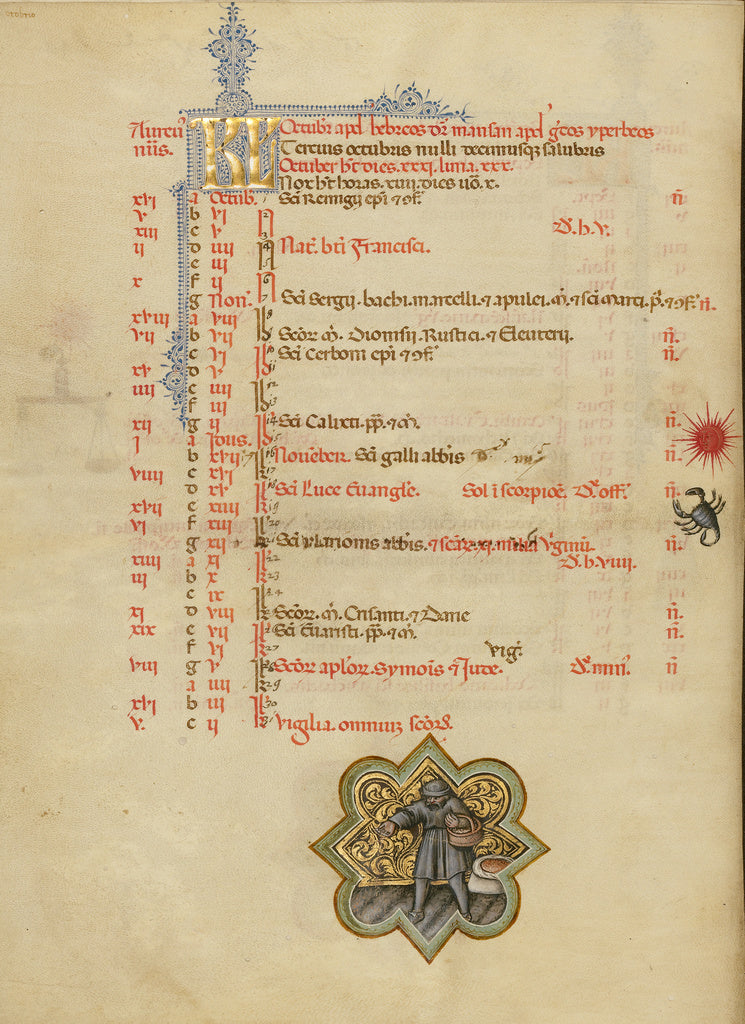 Aureus KL Octubr apd hebreos dr mansan apd grcos yperbeos
nus. Tercius octubris nulli decimusq; salubris
Octuber ht dies. xxxi. luna. xxx.
Nox ht horas. xiiii. dies uo. x.
xvi a Octub. Sci Remigii epi & 9f. n.
v b vi 2
xiii c v 3 D. h. v.
ii d iiii 4 Nat. bti Francisci.
e iii 5
x f ii 6
g Non. 7 Sci Sergii. bachi. marcelli. & apulei. m. & sci marci. pp. & 9f. n.
xviii a viii 8
vii b vii 9 Scor m. Dionisii. Rustici. & Eleuterii. n.
c vi 10 Sci Cerboni epi & 9f. n.
xv d v 11
iiii e iiii 12
f iii 13
xii g ii 14 Sci Calixti. pp. & m. n.
i a Idus. 15
b xvii 16 Nouember. Sci galli abbis n.
viiii c xvi 17
d xv 18 Sci Luce Euangle. Sol i scorpioe. D. off. n.
xvii e xiiii 19
vi f xiii 20
g xii 21 Sci ylarionis abbis. & scar. xi. milia Uginu. n.
xiiii a xi 22 D. h. viiii.
iii b x 23
c ix 24
xi d viii Scor. m. Crisanti. & Darie n.
xix e vii Sci Euaristi. pp. & m. n.
f vi 27 vig.
viii g v 28 Scor aplor. Symois & Jude. D. n.
a iiii 29
xvi b iii 30
v. c ii 31 Vigilia. omniu; scor.